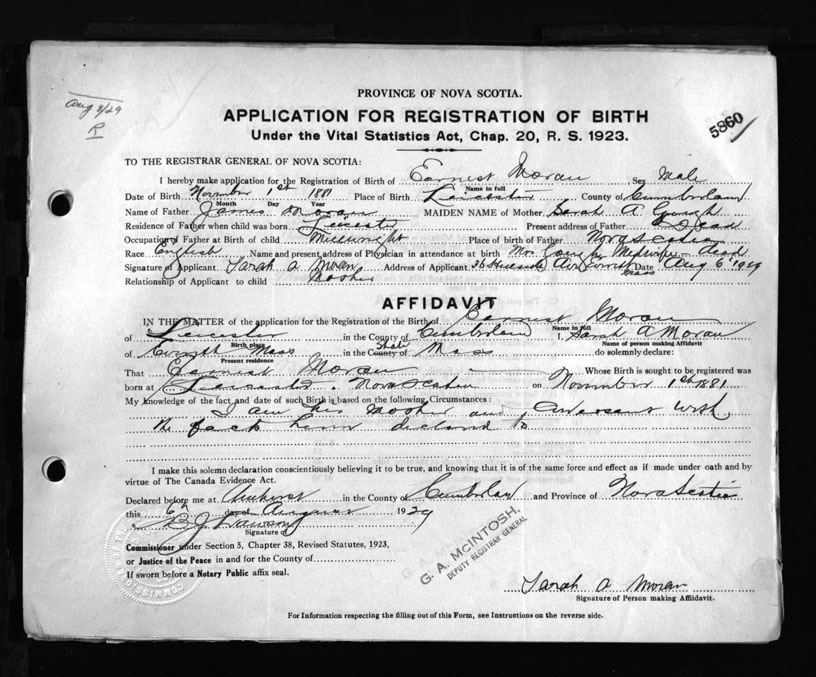 Aug 8/29
R
5860
PROVINCE OF NOVA SCOTIA.
APPLICATION FOR REGISTRATION OF BIRTH
Under the Vital Statistics Act, Chap. 20, R. S. 1923.
TO THE REGISTRAR GENERAL OF NOVA SCOTIA:
I hereby make application for the Registration of Birth of Earnest Moran Sex Male
Name in full
Date of Birth November 1st 1881 Place of Birth Leicester County of Cumberland
Month Day Year
Name of Father James Moran MAIDEN NAME of Mother Sarah A
Residence of Father when child was born Leicester Present address of Father Dead
Occupation of Father at Birth of child Millwright Place of birth of Father Nova Scotia
Race English Name and present address of Physician in attendance at birth Midwife dead
Signature of Applicant Sarah A Moran Address of Applicant 36 Ave Mass Date Aug 6 1929
Relationship of Applicant to child Mother
AFFIDAVIT
IN THE MATTER of the application for the Registration of the Birth of Earnest Moran
Name in full
of Leicester in the County of Cumberland I, Sarah A Moran
Birth place Name of person making Affidavit
of Mass in the County of State Mass do solemnly declare:
Present residence
That Earnest Moran Whose Birth is sought to be registered was
born at Leicester, Nova Scotia on November 1st 1881
My knowledge of the fact and date of such Birth is based on the following Circumstances:
I am his Mother and Conversant with
the facts herein declared to
I make this solemn declaration conscientiously believing it to be true, and knowing that it is of the same force and effect as if made under oath and by
virtue of The Canada Evidence Act.
Declared before me at Amherst in the County of Cumberland and Province of Nova Scotia
this 6th day of August 1929
Signature of
Commissioner under Section 5, Chapter 38, Revised Statutes, 1923,
or Justice of the Peace in and for the County of
If sworn before a Notary Public affix seal.
G. A. McINTOSH,
DEPUTY REGISTRAR GENERAL
Sarah A Moran
Signature of Person making Affidavit.
For Information respecting the filling out of this Form, see Instructions on the reverse side.